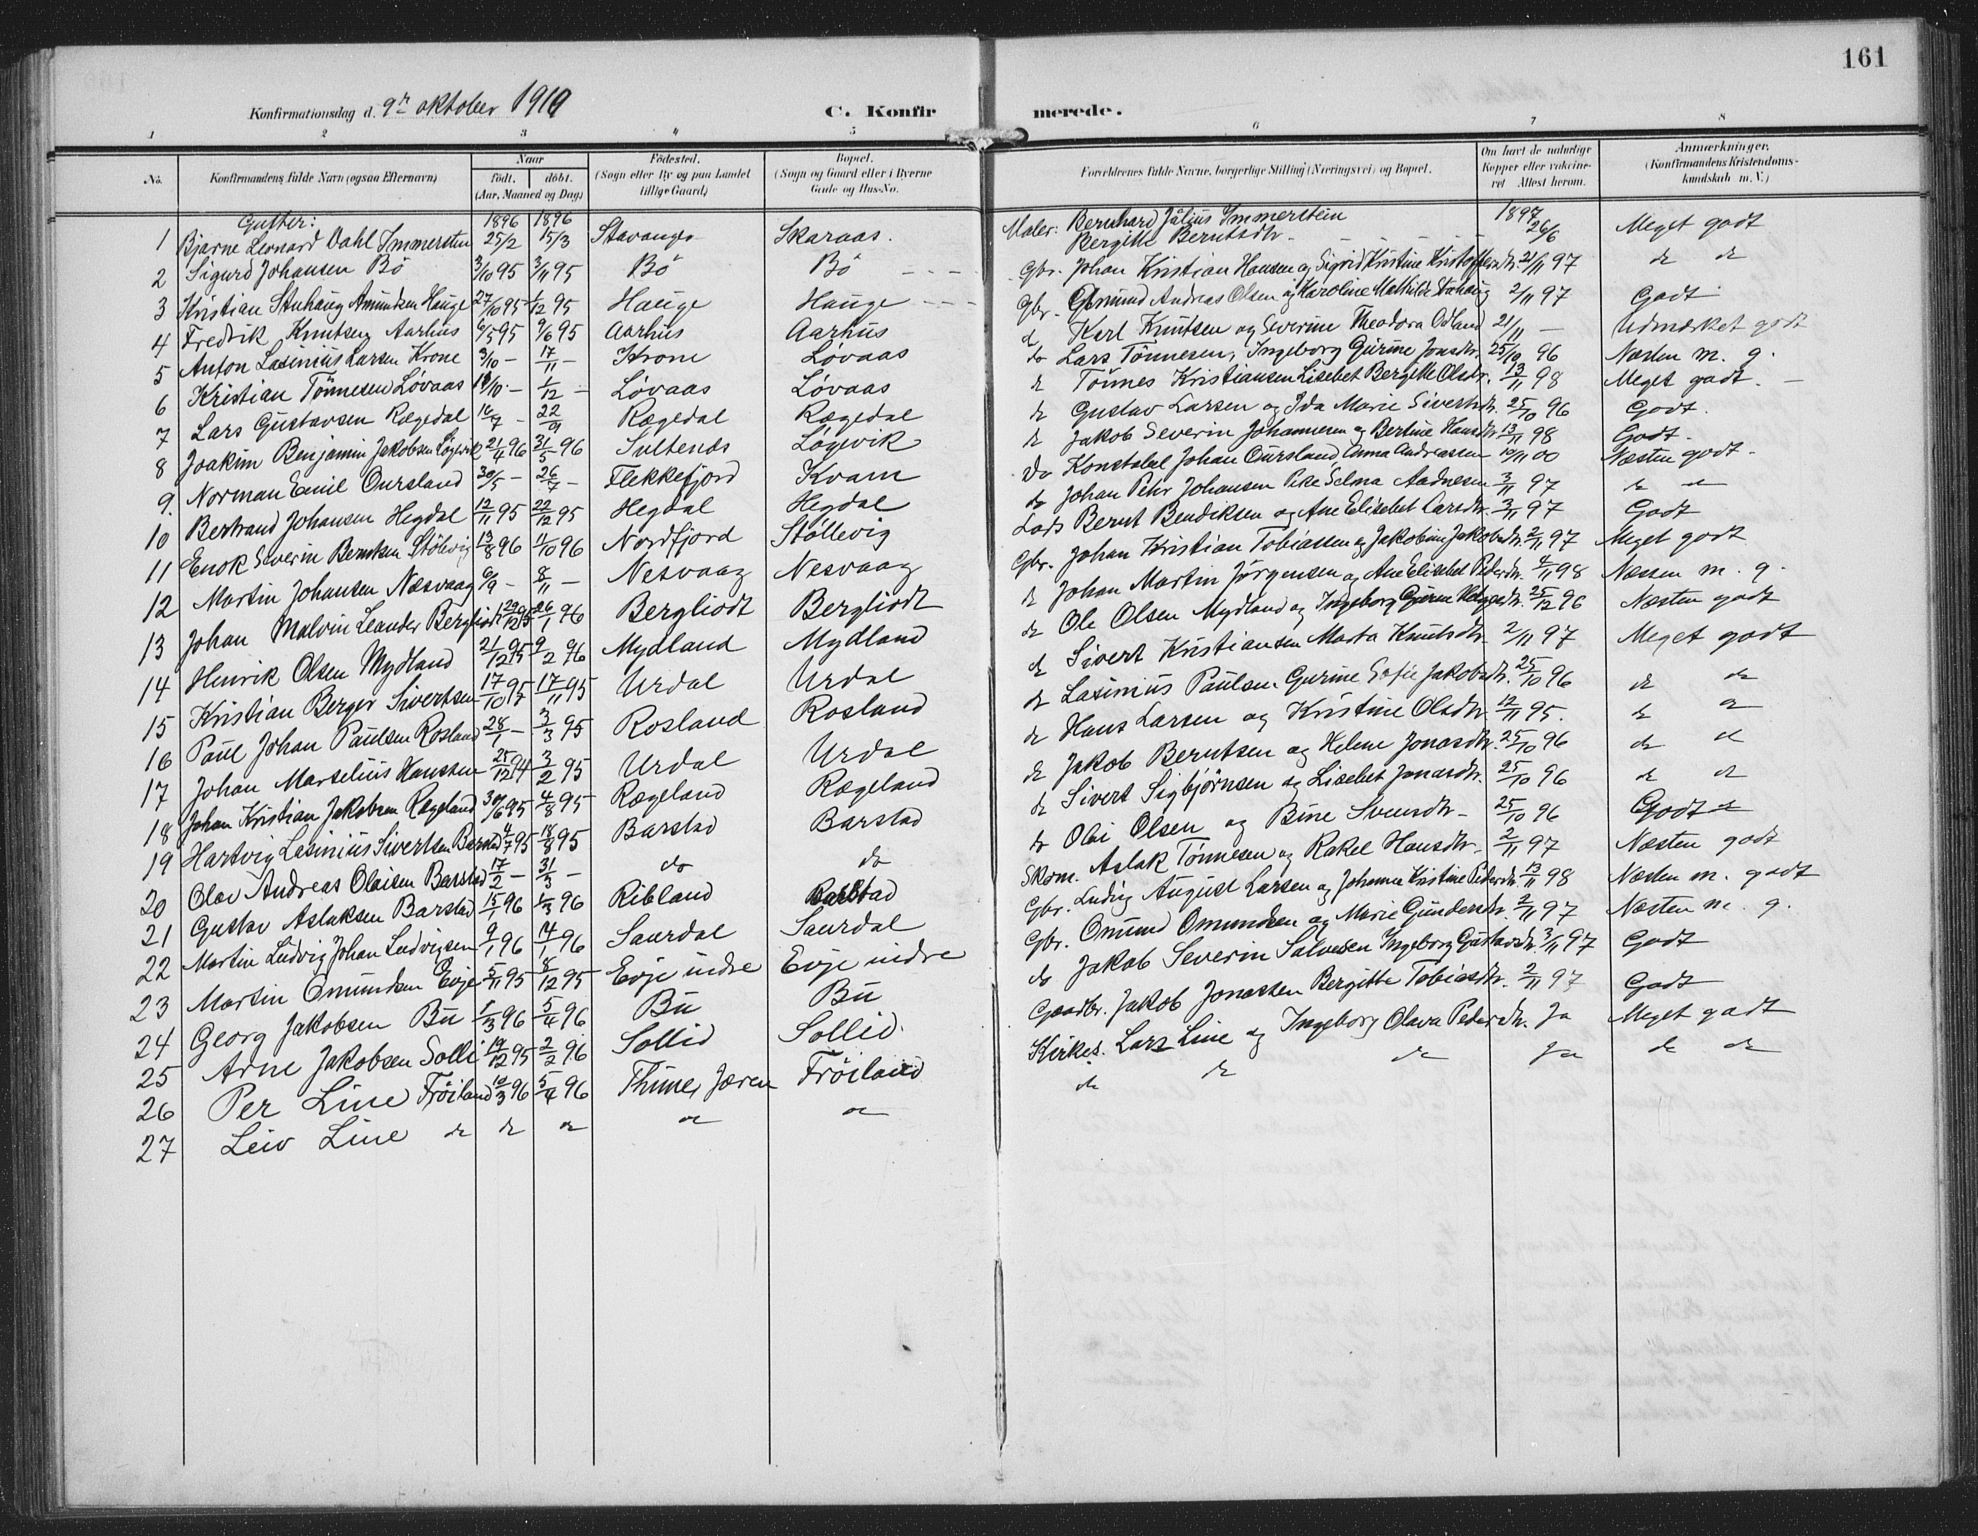 161
Konfirmationsdag d. 9de oktober 1910 C. Konfirmerede.
1 2 3 4 5 6 7 8
No. Konfirmandens fulde Navn (ogsaa Efternavn) Naar født. døbt. (Aar, Maaned og Dag) Fødested. (Sogn eller By og paa Landet tillige Gaard) Bopæl. (Sogn og Gaard eller i Byerne Gade og Hus-No. Forældrenes fulde Navne, borgerlige Stilling (Næringsvei) og Bopæl. Om havt de naturlige Kopper eller vaccineret Attest herom. Anmærkninger. (Konfirmandens Kristendomskundskab m. V.)
Gutter: 1896 1896 Maler: Bernhard Julius Immerstein 1897
1 Bjarne Leonard Dahl Immerstein 25/2 15/3 Stavanger Skaraas. Bergitte Berntsdtr. 26/6 Meget godt
2 Sigurd Johansen Bö 3/10 95 3/11 95 Bö Bö Gbr. Johan Kristian Hansen og Sigrid Kristine Kristoffersdtr. 21/11 97 do do
3 Kristian Stuhaug Amundsen Hauge 27/10 95 1/12 95 Hauge Hauge Gbr. Omund Andreas Olsen og Karoline Mathilde Stuhaug 2/11 97 Godt
4 Fredrik Knutsen Aarhus 6/5 95 9/6 95 Aarhus Aarhus do Karl Knutsen og Severine Theodora Odland 21/11 — Udmærket godt
5 Anton Lasinius Larsen Krone 3/10 — 17/11 — Krone Løvaas do Lars Tönnesen, Ingeborg Gurine Jonasdtr. 25/10 96 Næsten m. g.
6 Kristian Tönnesen Løvaas /10 — 1/12 — Løvaas Løvaas do Tönnes Kristiansen Lisebet Bergitte Olsdtr. 13/11 98 Meget godt. —
7 Lars Gustavsen Rægedal 16/7 — 22/9 Rægedal Rægedal do Gustav Larsen og Ida Marie Sivertsdtr. 25/10 96 Godt.
8 Joakim Benjamin Jakobsen Løgevik 21/4 96 31/5 96 Sultenes Løgevik do Jakob Severin Johannesen og Bertine Hansdtr. 13/11 98 Godt.
9. Norman Emil Oursland 30/5 — 26/7 — Flekkefjord Kvam do Konstabel Johan Oursland Emma Andreassen 10/11 00 Næsten godt.
10 Bertrand Johansen Hegdal 12/11 95 22/12 95 Hegdal Hegdal do Johan Pehr Johansen Selma Aadnesen 3/11 97 do do
11 Enok Severin Berntsen Stölevig 13/8 96 4/10 96 Nordfjord Støllevig Lods Bernt Bendiksen og Ane Elisebet Larsdtr. 3/11 97 Godt
12 Martin Johansen Næsvaag 6/9 — 8/11 — Nesvaag Nesvaag Gbr. Johan Kristian Tobiassen og Jakobine Jakobsdtr. 2/11 97 Meget godt
13 Johan Malvin Leander Bergliodt 29/12 95 26/1 96 Bergliodt Bergliodt do Johan Martin Jörgensen og Ane Elisebet Pedersdtr. 4/11 98 Næsten m. g.
14 Henrik Olsen Mydland 21/12 95 9/2 96 Mydland Mydland do Ole Olsen Mydland og Ingeborg Gurine Helgesdtr. 25/12 96 Næsten godt
15 Kristian Berger Sivertsen 17/10 95 17/11 95 Urdal Urdal do Sivert Kristiansen Marta Knutsdtr. 2/11 97 Meget godt
16 Paul Johan Paulsen Rosland 28/1 — 3/3 95 Rosland Rosland do Lasinius Paulsen Gurine Sofie Jakobsdtr. 25/10 96 do do
17 Johan Marselius Hanssen 25/12 94 3/2 95 Urdal Urdal do Hans Larsen og Kristine Olsdtr 12/11 95. do do
18 Johan Kristian Jakobsen Rægeland 30/6 95 4/8 95 Rægeland Rægeland do Jakob Berntsen og Helene Jonasdtr. 25/10 96 do do
19 Hartvig Lasinius Sivertsen Barstad 4/7 95 18/8 95 Barstad Barstad do Sivert Sigbjørnsen og Lisebet Jonasdtr. 25/10 96 do do
20 Olav Andreas Olaisen Barstad 17/2 — 31/3 — do do do Olai Olsen og Bine Svensdtr. 25/10 96 Godt
21 Gustav Aslaksen Barstad 15/1 96 1/3 96 Ribland Barstad Skom. Aslak Tönnesen og Rakel Hansdtr. 2/11 97 Næsten godt
22 Martin Ludvig Johan Ludvigsen 9/1 96 /1 96 Saurdal Saurdal Gbr. Ludvig August Larsen og Johanne Kristine Pedersdtr. 13/11 98 Næsten m. godt
23 Martin Omundsen Evje 5/11 95 8/12 95 Evje indre Evje indre Gbr. Omund Omundsen og Marie Gundersdtr. 2/11 97 Næsten m. g.
24 Georg Jakobsen Bu 1/3 96 5/4 96 Bu Bu do Jakob Severin Salvesen Ingeborg Gustavsdtr. 3/11 97 Godt
25 Arne Jakobsen Solli 19/12 95 2/2 96 Sollid Sollid. Gaardbr. Jakob Jonassen Bergitte Tobiasdtr. 2/11 97 Godt
26 Per Line Fröiland 10/3 96 5/4 96 Thime, Jæren Fröiland Kirkes. Lars Line og Ingeborg Olava Pedersdtr. Ja Meget godt
27 Leiv Line do do do do do do do do Ja do do